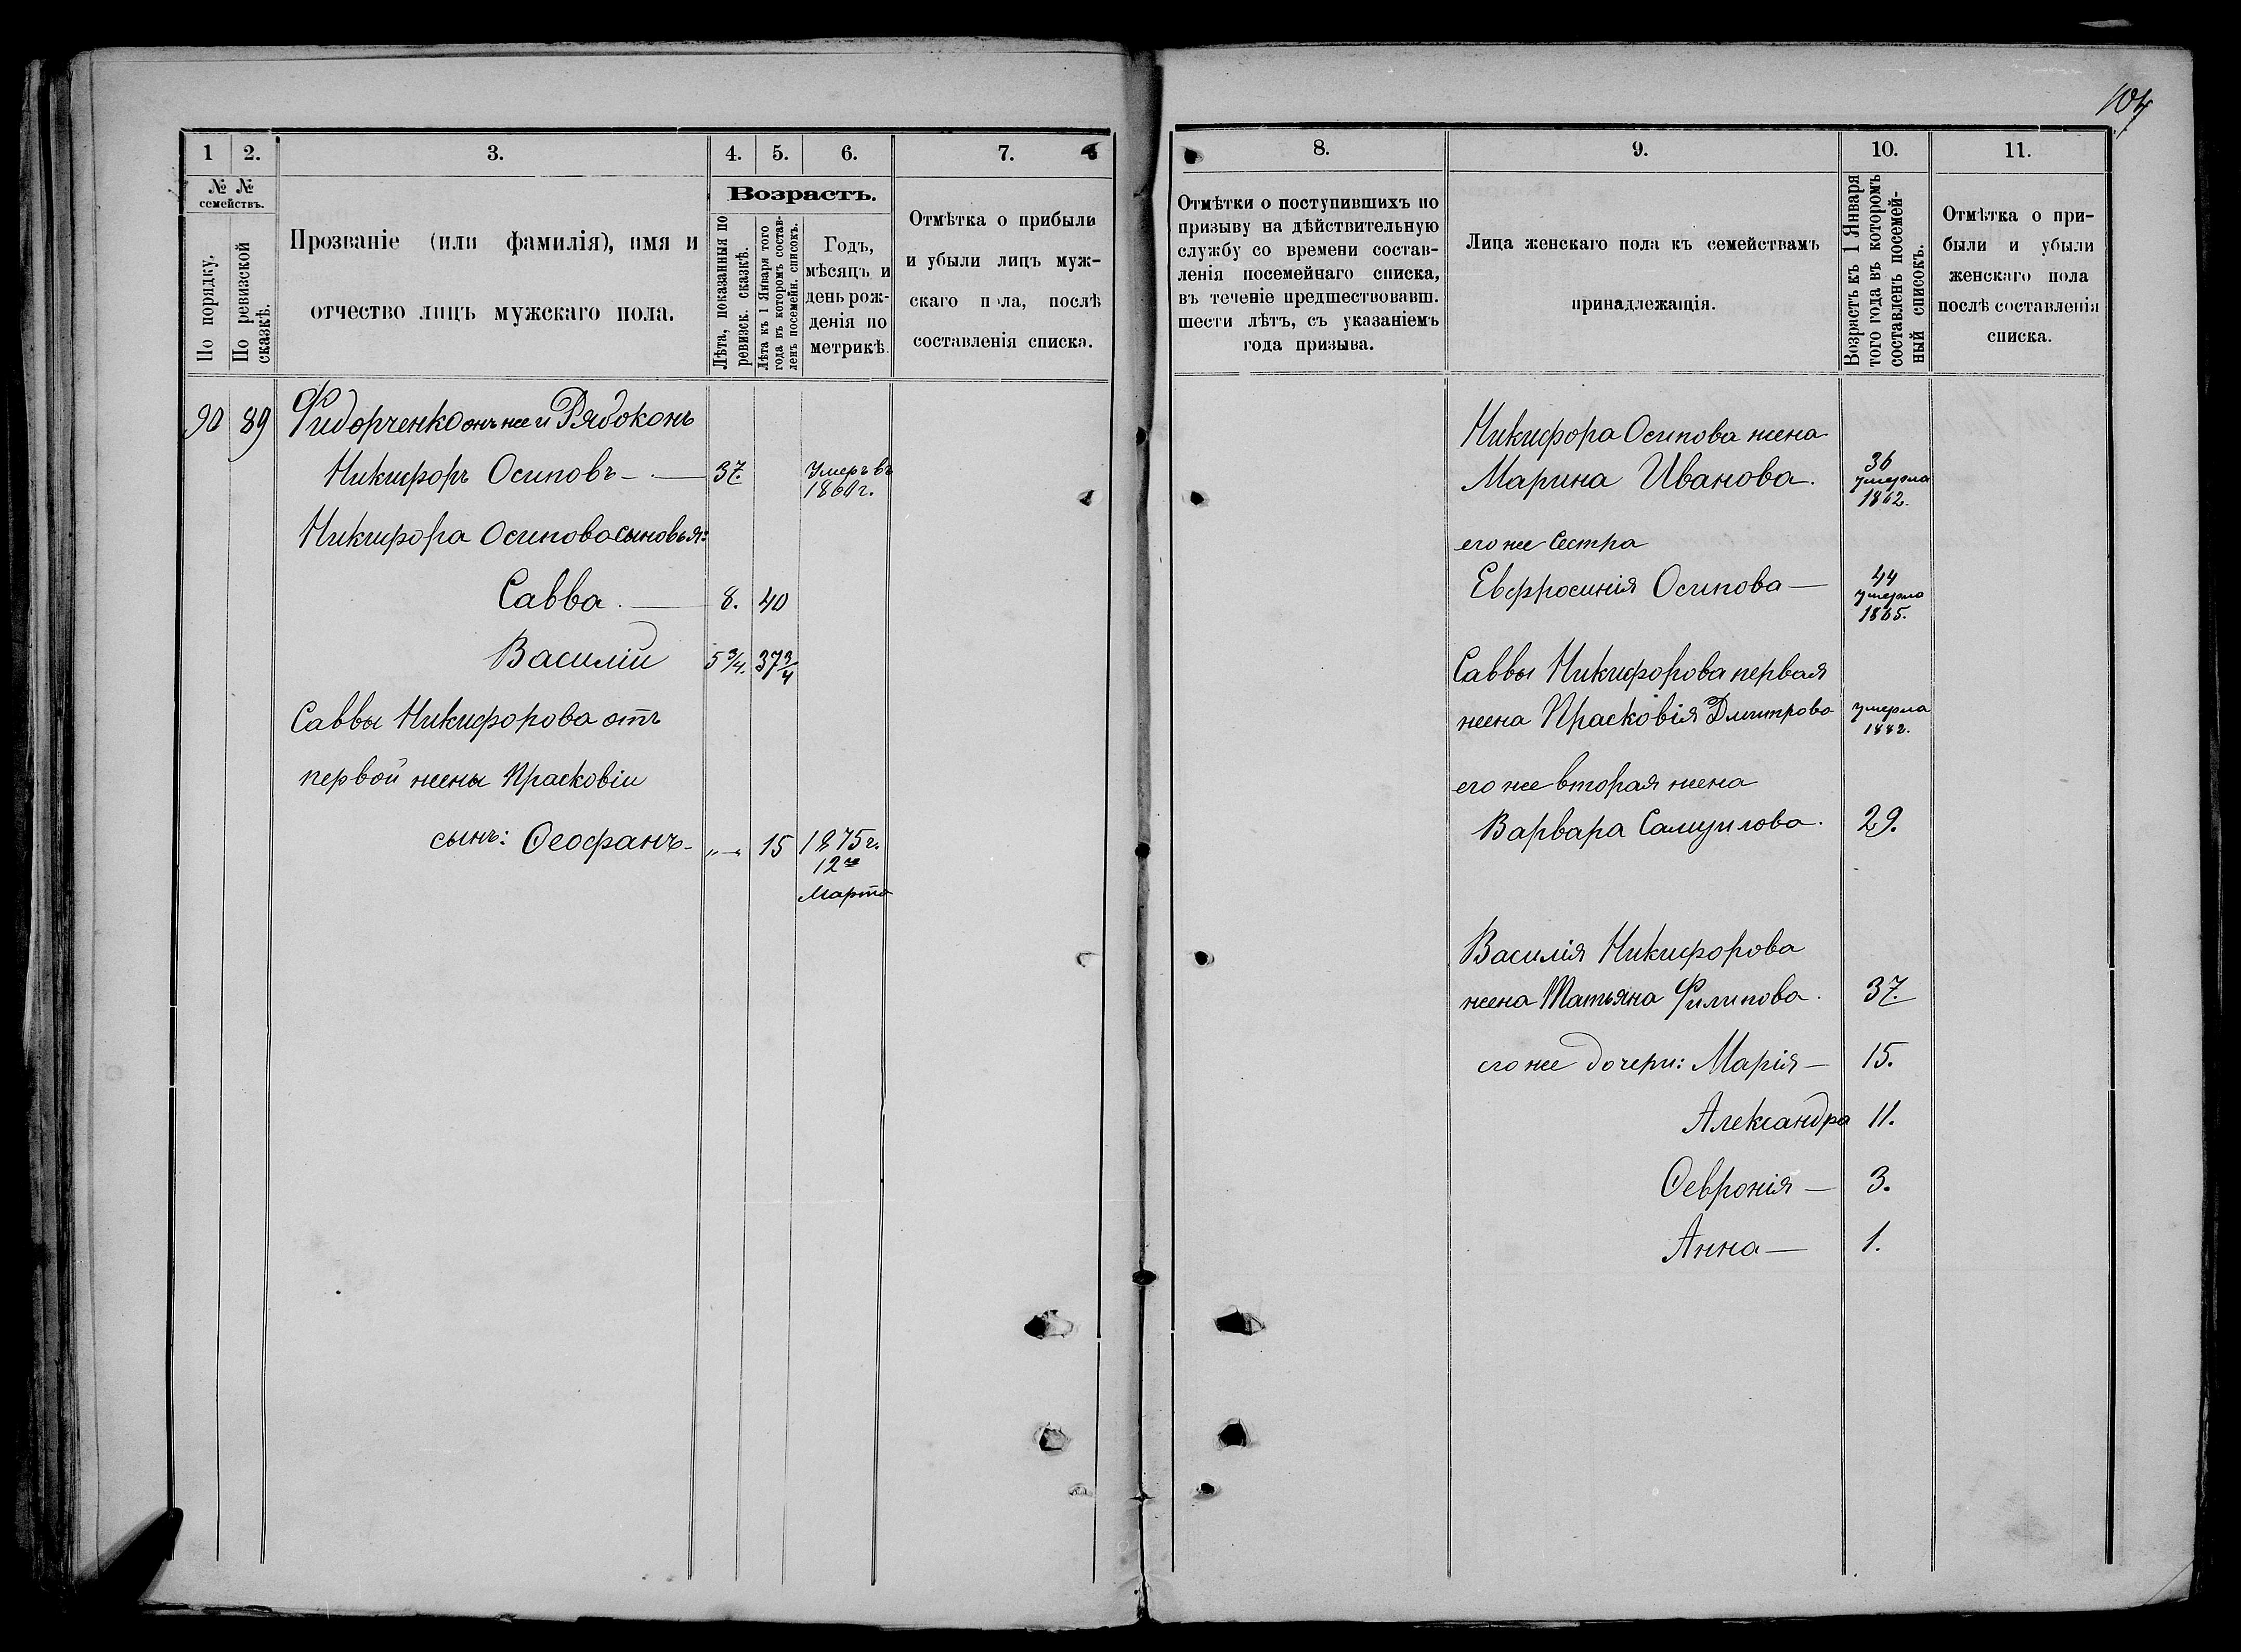 104
1
2.
3.
4.
5.
6.
7.
№ №
семействъ.
По порядку.
По ревизской
сказкѣ.
Прозваніе (или фамилія), имя и
отчество лицъ мужскаго пола.
Возрастъ.
Лѣта, показанныя по
ревизск. сказкѣ.
Лѣта къ 1 Января того
года въ которомъ состав-
ленъ посемейн. списокъ.
Годъ,
мѣсяцъ и
день рож-
денія по
метрикѣ.
Отмѣтка о прибыли
и убыли лицъ муж-
скаго пола, послѣ
составленія списка.
90 89 Фидорченко онъ же и Рябоконь
Никифоръ Осиповъ — 37. Умеръ въ
1860 г.
Никифора Осипова сыновья:
Савва. — 8. 40
Василій 5 3/4. 37 3/4
Саввы Никифорова отъ
первой жены Прасковіи
сынъ: Ѳеофанъ - „—„ 15 1875 г.
12го
Марта
8.
9.
10.
11.
Отмѣтки о поступившихъ по
призыву на дѣйствительную
службу со времени состав-
ленія посемейнаго списка,
въ теченіе предшествовавш.
шести лѣтъ, съ указаніемъ
года призыва.
Лица женскаго пола къ семействамъ
принадлежащія.
Возрастъ къ 1 Января
того года въ которомъ
составленъ посемей-
ный списокъ.
Отмѣтка о при-
были и убыли
женскаго пола
послѣ составленія
списка.
Никифора Осипова жена
Марина Иванова. 36
умерла
1862.
его же сестра
Евфросинія Осипова — 44
умерла
1865.
Саввы Никифорова первая
жена Прасковія Дмитрова умерла
1882.
его же вторая жена
Варвара Самуилова. 29.
Василія Никифорова
жена Татьяна Филипова. 37.
его же дочери: Марія — 15.
Александра 11.
Ѳевронія — 3.
Анна — 1.